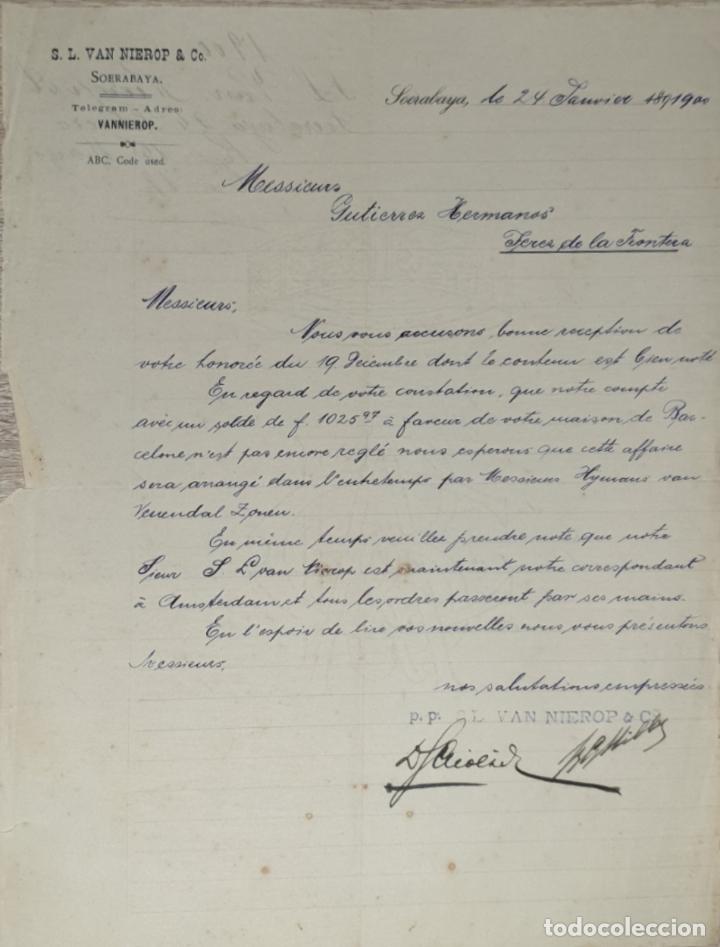 S. L. VAN NIEROP & Co.
SOERABAYA.
Telegram-Adres:
VANNIEROP.
ABC. Code used.
Soerabaya, le 24 Janvier 1891900
Messieurs
Gutierrez Hermanos
Jerez de la Frontera
Messieurs,
Nous vous accusons bonne reception de
votre honorée du 19 Décembre dont le contenu est bien noté
En regard de votre constation, que notre compte
avec un solde de f. 1025.97 à faveur de votre maison de Bar-
celone n'est pas encore reglé nous esperons que cette affaire
sera arrangé dans l'entretemps par Messieurs Hymans van
Veenendal Zonen.
En même temps veuillez prendre note que notre
Sieur S. L van Nierop est maintenant notre correspondant
à Amsterdam et tous les ordres passeront par ses mains.
En l'espoir de lire vos nouvelles nous vous présentons
Messieurs,
nos salutations empressées
p.p. S.L. VAN NIEROP & Co
todocoleccion
todocoleccion.net